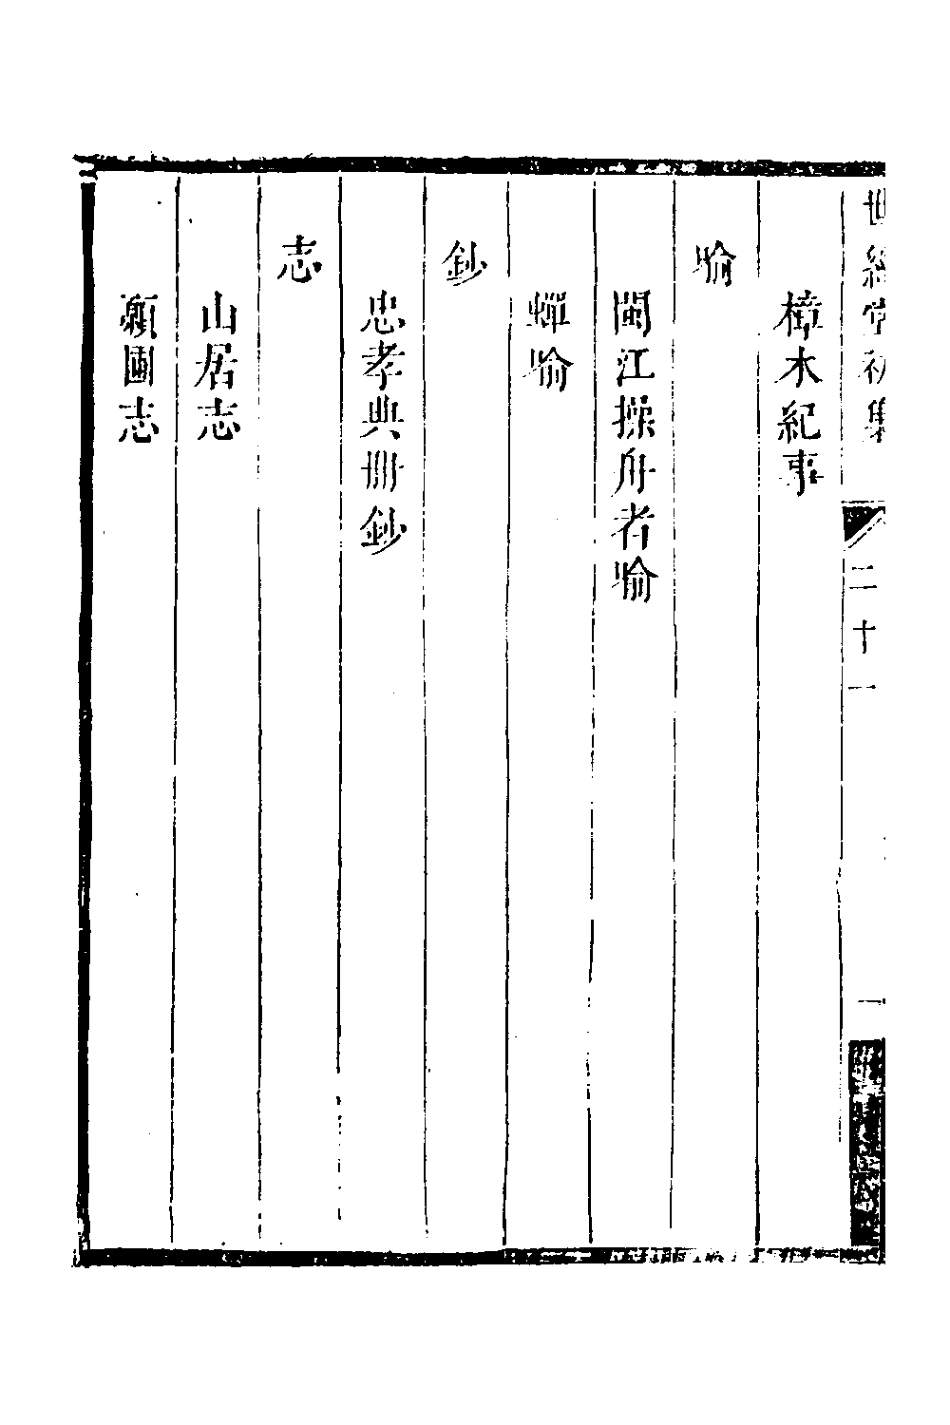 世經堂初集
二十一
一
樟木紀事
喻
閩江操舟者喻
蟬喻
鈔
忠孝典冊鈔
志
山居志
穎圃志